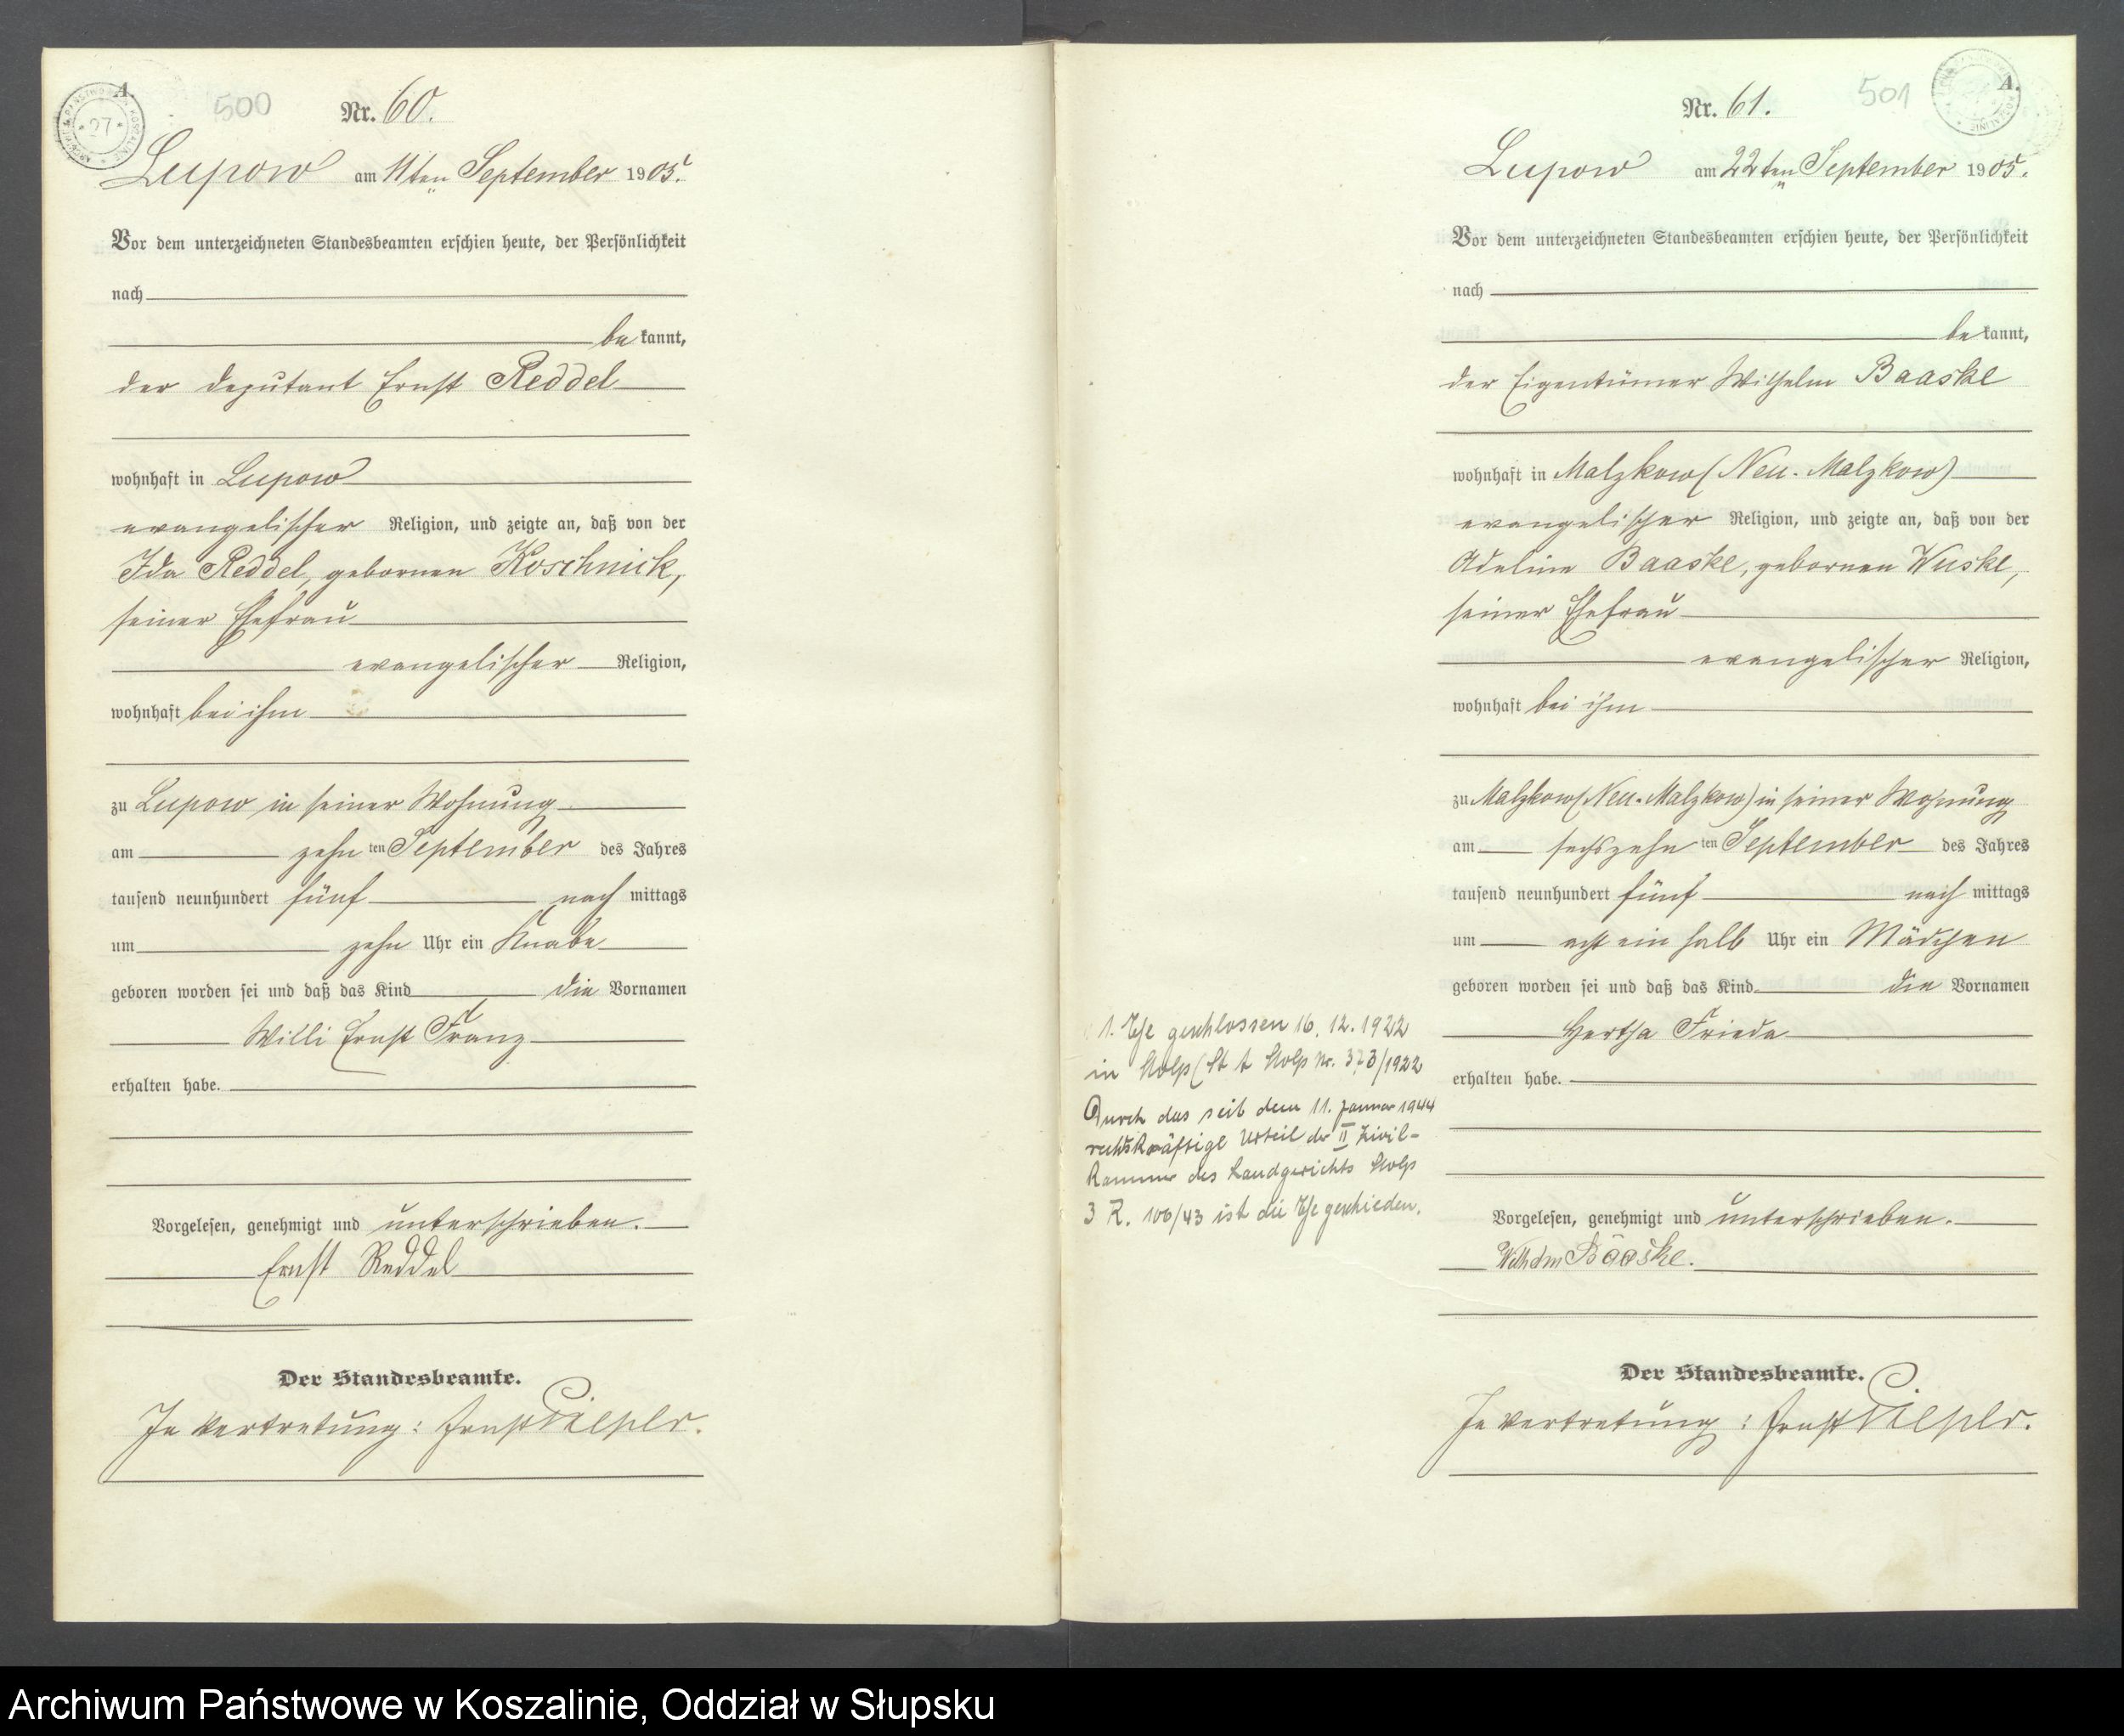 A.
500
Nr. 60.
Lupow am 11ten September 1905.
Vor dem unterzeichneten Standesbeamten erschien heute, der Persönlichkeit
nach
be kannt,
der Deputant Ernst Reddel
wohnhaft in Lupow
evangelischer Religion, und zeigte an, daß von der
Ida Reddel, geborenen Koschnick,
seiner Ehefrau
evangelischer Religion,
wohnhaft bei ihm
zu Lupow in seiner Wohnung
am zehn ten September des Jahres
tausend neunhundert fünf nach mittags
um zehn Uhr ein Knabe
geboren worden sei und daß das Kind die Vornamen
Willi Ernst Franz
erhalten habe.
Vorgelesen, genehmigt und unterschrieben.
Ernst Reddel
Der Standesbeamte.
In Vertretung: Ernst
A.
501
Nr. 61.
Lupow am 22ten September 1905.
Vor dem unterzeichneten Standesbeamten erschien heute, der Persönlichkeit
nach
be kannt,
der Eigentümer Wilhelm Baaske
wohnhaft in Malzkow (Neu-Malzkow)
evangelischer Religion, und zeigte an, daß von der
Adeline Baaske, geborenen Wuske,
seiner Ehefrau
evangelischer Religion,
wohnhaft bei ihm
zu Malzkow (Neu-Malzkow) in seiner Wohnung
am sechszehn ten September des Jahres
tausend neunhundert fünf nach mittags
um acht ein halb Uhr ein Mädchen
geboren worden sei und daß das Kind die Vornamen
Hertha Frieda
erhalten habe.
Vorgelesen, genehmigt und unterschrieben.
Wilhelm Baaske.
Der Standesbeamte.
In Vertretung: Ernst
1. Ehe geschlossen 16. 12. 1922
in Stolp (St A Stolp Nr. 373/1922
Durch das seit dem 11. Januar 1944
rechtskräftige Urteil der II Zivil-
kammer des Landgerichts Stolp
3 R. 100/43 ist die Ehe geschieden.
Archiwum Państwowe w Koszalinie, Oddział w Słupsku